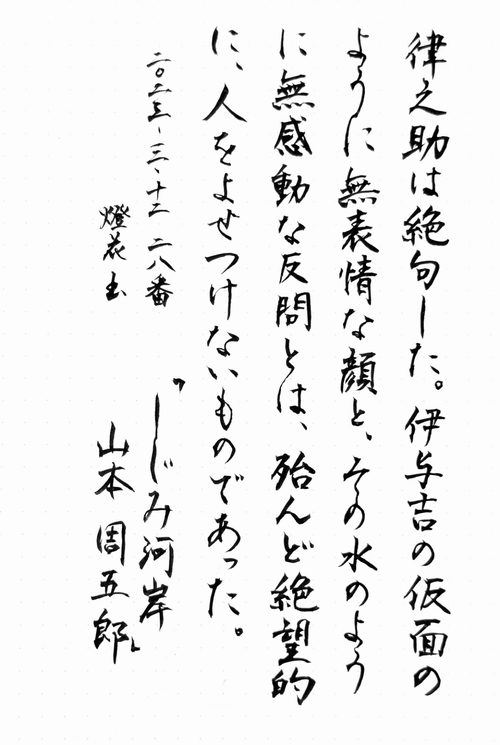 律之助は絶句した。伊与吉の仮面の
ように無表情な顔と、その水のよう
に無感動な反問とは、殆んど絶望的
に、人をよせつけないものであった。
二〇二三・三・十二 二八番
燈花
『しじみ河岸
山本周五郎』